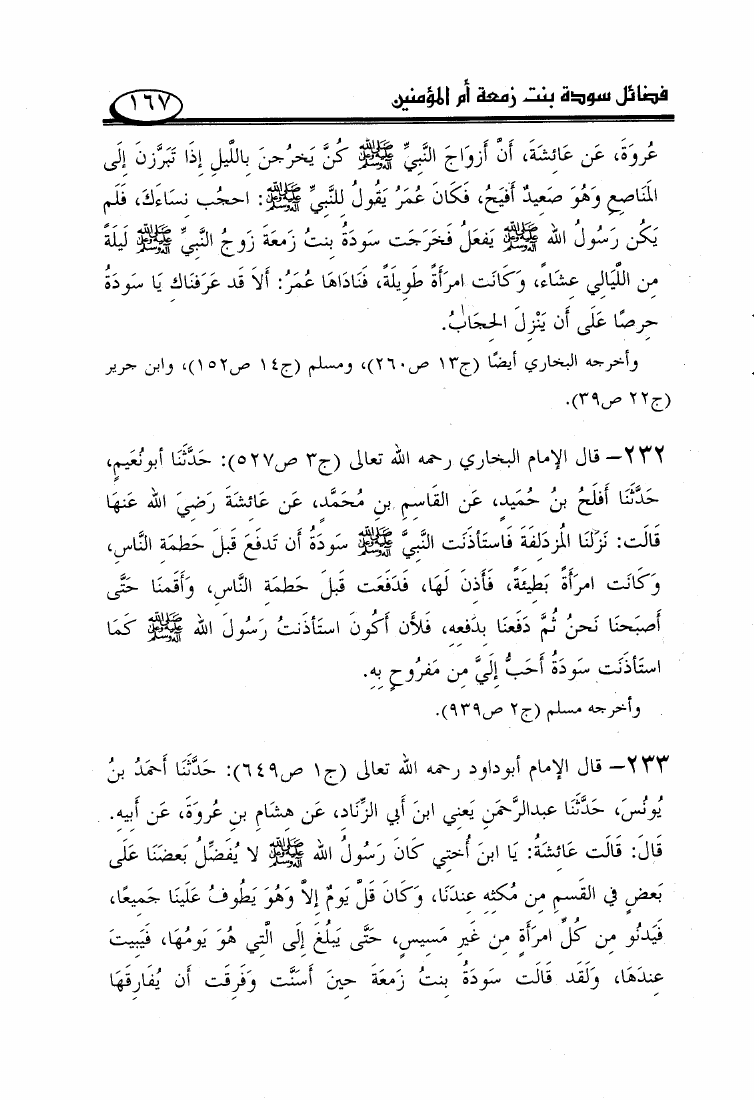 فضائل سودة بنت زمعة أم المؤمنين ١٦٧
عُروَةَ، عَن عَائِشَةَ، أَنَّ أَزوَاجَ النَّبِيِّ ﷺ كُنَّ يَخرُجنَ بِاللَّيلِ إِذَا تَبَرَّزنَ إِلَى
المَنَاصِعِ وَهُوَ صَعِيدٌ أَفيَحُ، فَكَانَ عُمَرُ يَقُولُ لِلنَّبِيِّ ﷺ: احجُب نِسَاءَكَ، فَلَم
يَكُن رَسُولُ الله ﷺ يَفعَلُ فَخَرَجَت سَودَةُ بِنتُ زَمعَةَ زَوجُ النَّبِيِّ ﷺ لَيلَةً
مِن اللَّيَالِي عِشَاءً، وَكَانَت امرَأَةً طَوِيلَةً، فَنَادَاهَا عُمَرُ: أَلاَ قَد عَرَفنَاكِ يَا سَودَةُ
حِرصًا عَلَى أَن يَنْزِلَ الحِجَابُ.
وأخرجه البخاري أيضًا (ج١٣ ص٢٦٠)، ومسلم (ج١٤ ص١٥٢)، وابن جرير
(ج٢٢ ص٣٩).
٢٣٢- قال الإمام البخاري رحمه الله تعالى (ج٣ ص٥٢٧): حَدَّثَنَا أبونُعَيمٍ،
حَدَّثَنَا أَفلَحُ بنُ حُمَيدٍ، عَن القَاسِمِ بنِ مُحَمَّدٍ، عَن عَائِشَةَ رَضِيَ الله عَنهَا
قَالَت: نَزَلنَا المُزدَلِفَةَ فَاستَأذَنَت النَّبِيَّ ﷺ سَودَةُ أَن تَدفَعَ قَبلَ حَطمَةِ النَّاسِ،
وَكَانَت امرَأَةً بَطِيئَةً، فَأَذِنَ لَهَا، فَدَفَعَت قَبلَ حَطمَةِ النَّاسِ، وَأَقَمنَا حَتَّى
أَصبَحنَا نَحنُ ثُمَّ دَفَعنَا بِدَفعِهِ، فَلأَن أَكُونَ استَأذَنتُ رَسُولَ الله ﷺ كَمَا
استَأذَنَت سَودَةُ أَحَبُّ إِلَيَّ مِن مَفرُوحٍ بِهِ.
وأخرجه مسلم (ج٢ ص٩٣٩).
٢٣٣- قال الإمام أبوداود رحمه الله تعالى (ج١ ص٦٤٩): حَدَّثَنَا أَحمَدُ بنُ
يُونُسَ، حَدَّثَنَا عبدالرَّحمَنِ يَعنِي ابنَ أَبِي الزِّنَادِ، عَن هِشَامِ بنِ عُروَةَ، عَن أَبِيهِ.
قَالَ: قَالَت عَائِشَةُ: يَا ابنَ أُختِي كَانَ رَسُولُ الله ﷺ لا يُفَضِّلُ بَعضَنَا عَلَى
بَعضٍ فِي القَسمِ مِن مُكثِهِ عِندَنَا، وَكَانَ قَلَّ يَومٌ إِلاَّ وَهُوَ يَطُوفُ عَلَينَا جَمِيعًا،
فَيَدنُو مِن كُلِّ امرَأَةٍ مِن غَيرِ مَسِيسٍ، حَتَّى يَبلُغَ إِلَى الَّتِي هُوَ يَومُهَا، فَيَبِيتَ
عِندَهَا، وَلَقَد قَالَت سَودَةُ بِنتُ زَمعَةَ حِينَ أَسَنَّت وَفَرِقَت أَن يُفَارِقَهَا